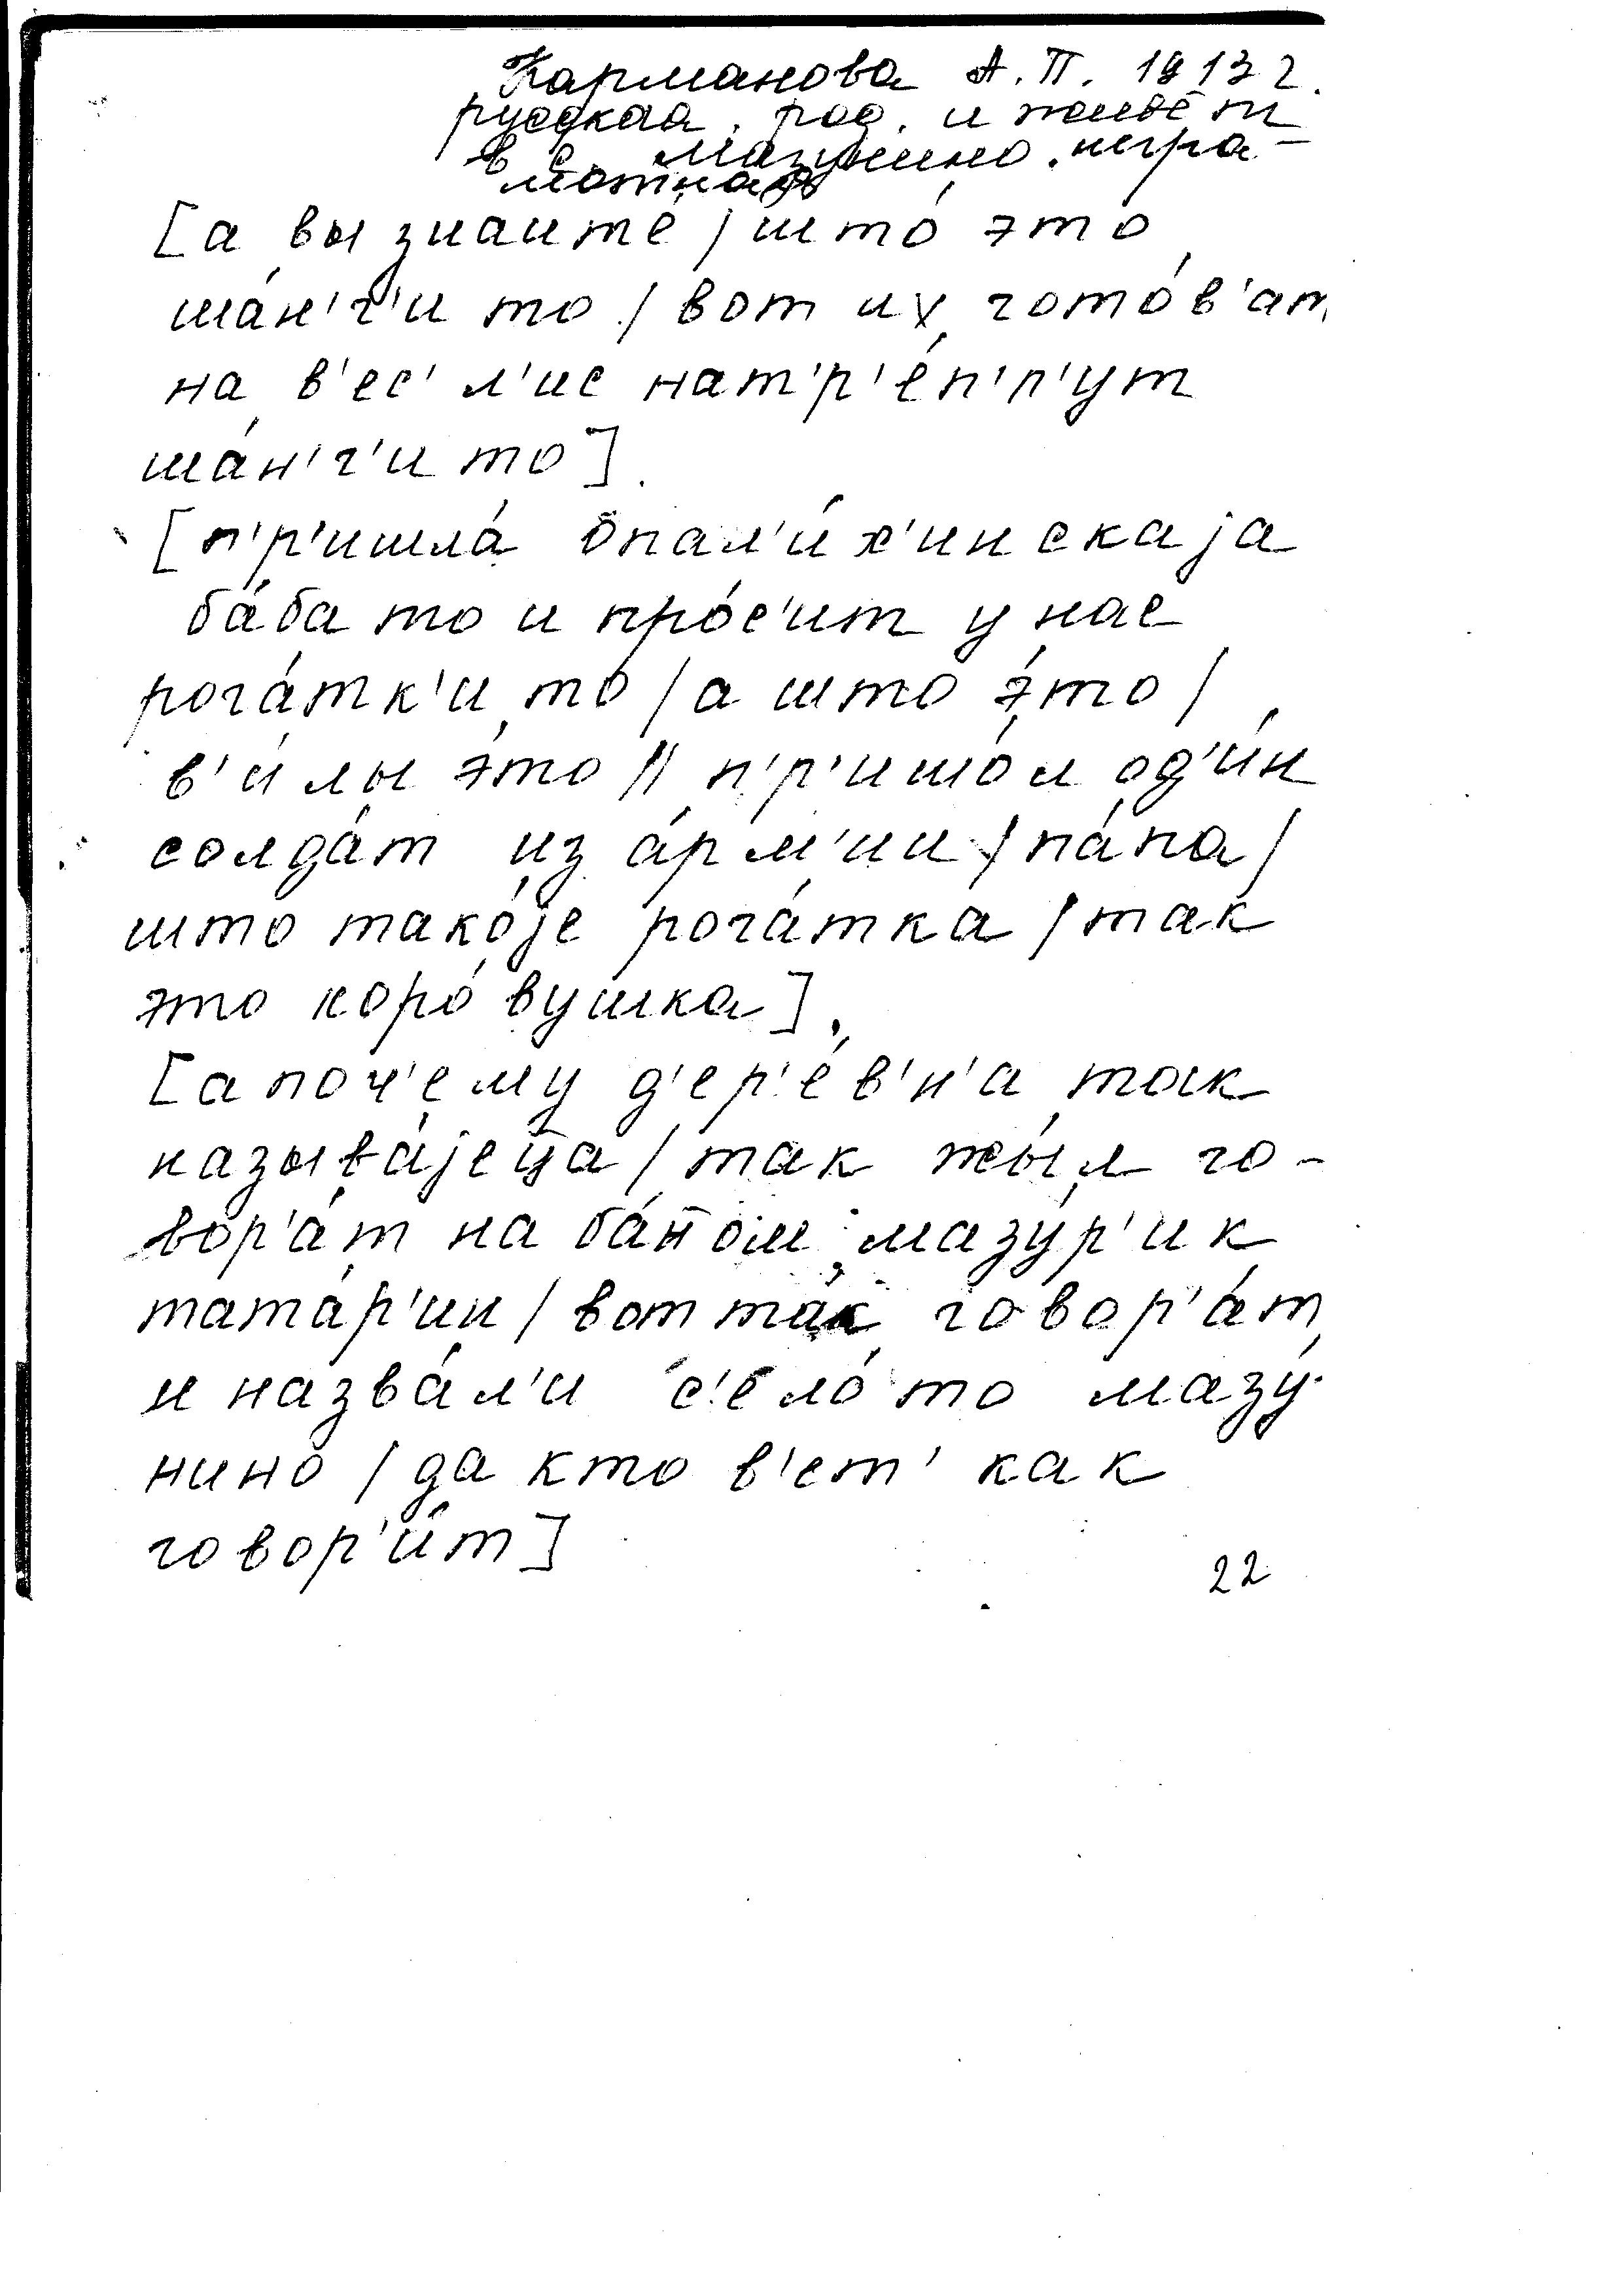 Карманова А. П. 1913 г.
русская, род. и живёт
в с. Мазунино, негра-
мотная
[а вы знаитѐ / што́ э́то
ша́н'г'и то / вот их гото́в'ат
на в'ес' л'ис нат'р'е́п'п'ут
ша́н'г'и то].
[п'р'ишла́ опал'и́х'инскаjа
ба́ба то и про́с'ит у нас
рога́тк'и то / а што э́то /
в'и́лы э́то // п'р'ишо́л од'и́н
солда́т из а́рм'ии / па́па /
што тако́jе рога́тка / так
это коро́вушка].
[а поч'ему д'ер'е́в'н'а так
называ́jеца / так жы́л го-
вор'а́т на ба́ном мазу́р'ик
тата́р'ин / вот та́к говор'а́т
и назва́л'и с'ело́ то мазу́-
нино / да кто в'ет' как
говор'и́т]
22